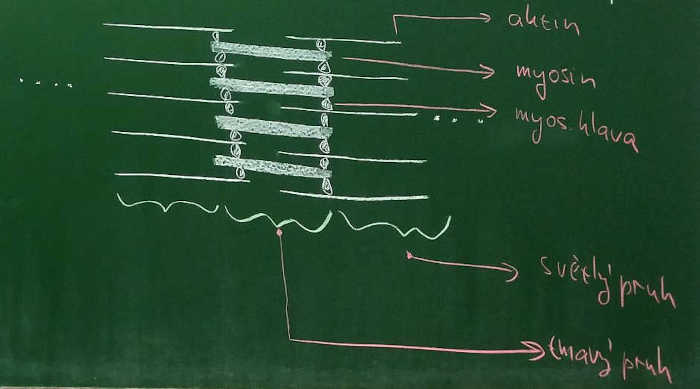 aktin
myosin
myos. hlava
světlý pruh
tmavý pruh